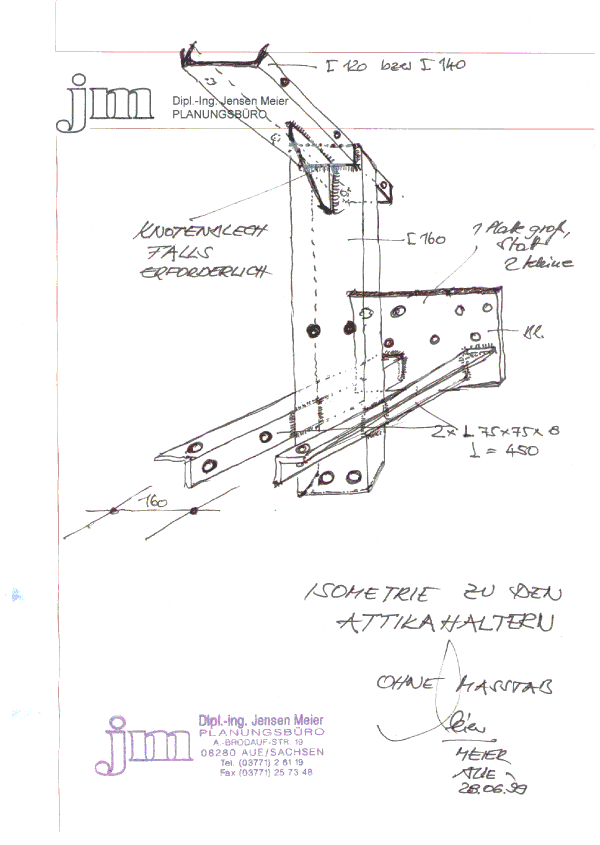 [ 120 bzw [ 140
jm
Dipl.-Ing. Jensen Meier
PLANUNGSBÜRO
KNOTENBLECH
FALLS
ERFORDERLICH
[ 160
1 Platte groß,
statt
2 kleine
Bl.
2x L 75x75x8
L = 450
160
ISOMETRIE ZU DEN
ATTIKAHALTERN
OHNE MASSTAB
MEIER
AUE
28.06.99
jm
Dipl.-Ing. Jensen Meier
PLANUNGSBÜRO
A.-BRODAUF-STR. 19
08280 AUE/SACHSEN
Tel. (03771) 2 61 19
Fax (03771) 25 73 48